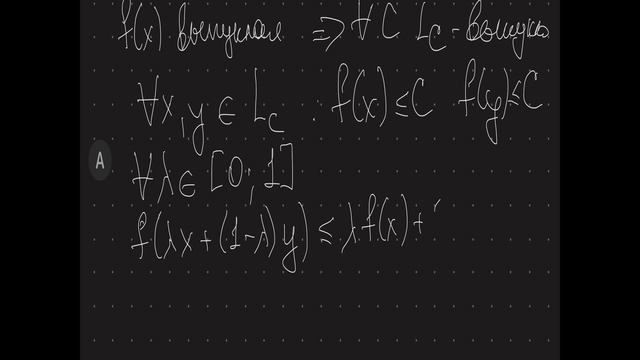 f(x) выпуклая => ∀ C L_C - выпукл
∀x, y ∈ L_C . f(x) ≤ C f(y) ≤ C
A
∀λ ∈ [0, 1]
f(λx + (1-λ)y) ≤ λ f(x) +